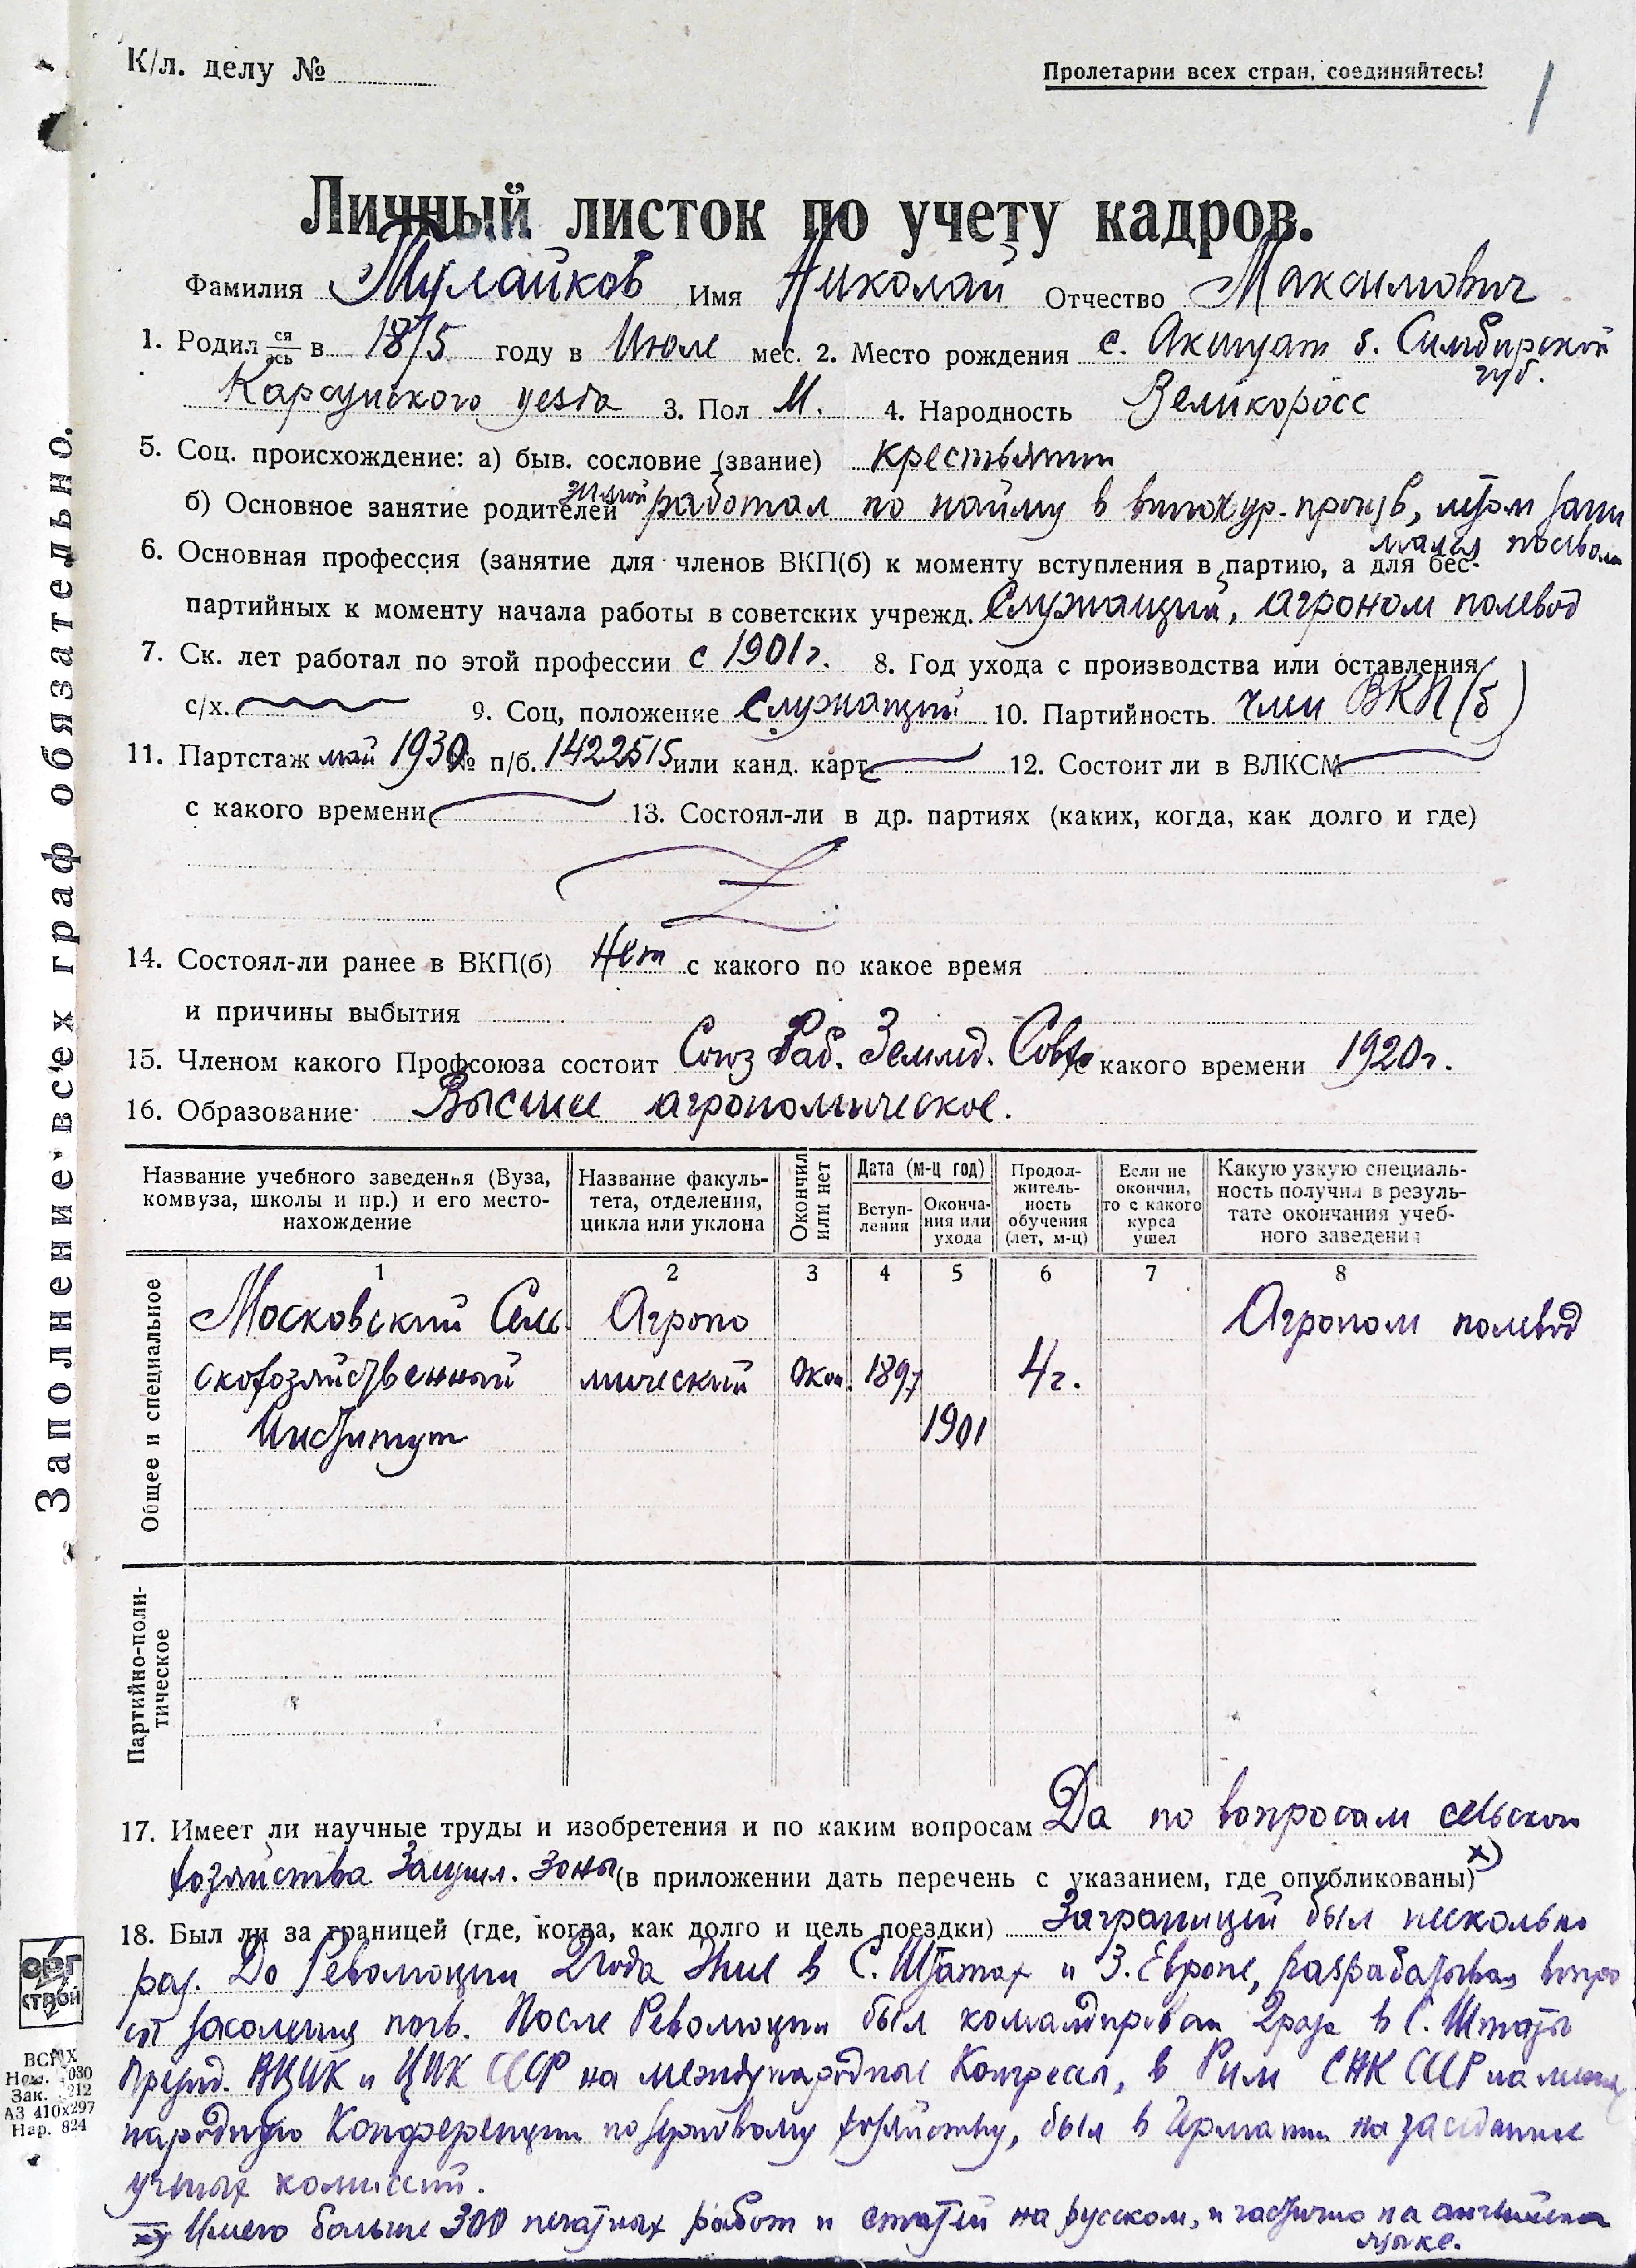 К/л. делу №
Пролетарии всех стран, соединяйтесь!
1
Личный листок по учету кадров.
Фамилия Тулайков Имя Николай Отчество Максимович
1. Родил ся/ась в 1875 году в Июле мес. 2. Место рождения с. Акшуат б. Симбирской
губ.
Карсунского уезда 3. Пол М. 4. Народность Великоросс
5. Соц. происхождение: а) быв. сословие (звание) крестьянин
б) Основное занятие родителей зимой работал по найму в винокур. произв, летом зани
мался
6. Основная профессия (занятие для членов ВКП(б) к моменту вступления в партию, а для бес-
партийных к моменту начала работы в советских учрежд. Служащий, агроном полевод
7. Ск. лет работал по этой профессии с 1901 г. 8. Год ухода с производства или оставления
с/х. 9. Соц, положение Служащий 10. Партийность член ВКП(б)
11. Партстаж май 1930 № п/б. 1422515 или канд. карт. 12. Состоит ли в ВЛКСМ
с какого времени 13. Состоял-ли в др. партиях (каких, когда, как долго и где)
14. Состоял-ли ранее в ВКП(б) Нет с какого по какое время
и причины выбытия
15. Членом какого Профсоюза состоит Союз Раб. Землед. Совх с какого времени 1920 г.
16. Образование Высшее агрономическое.
Название учебного заведенья (Вуза, комвуза, школы и пр.) и его место-нахождение
Название факуль-тета, отделения, цикла или уклона
Окончил или нет
Дата (м-ц год)
Вступ-ления
Оконча-ния или ухода
Продол-житель-ность обучения (лет, м-ц)
Если не окончил, то с какого курса ушел
Какую узкую специаль-ность получил в резуль-тате окончания учеб-ного заведения
1 2 3 4 5 6 7 8
Общее и специальное
Московский Сель Агроно Агроном полевод
скохозяйственный мический Окон. 1897 4 г.
Институт 1901
Партийно-поли-тическое
17. Имеет ли научные труды и изобретения и по каким вопросам Да по вопросам сельского
хозяйства Засушл. зоны (в приложении дать перечень с указанием, где опубликованы) х)
18. Был ли за границей (где, когда, как долго и цель поездки) Заграницей был несколько
раз. До Революции 2 года жил в С. Штатах и З. Европе, разрабатывая вопро
сы засоления почв. После Революции был командирован 2 раза в С. Штаты
Презид. ВЦИК и ЦИК СССР на международные Конгрессы, в Рим СНК СССР на между
народную Конференцию по зерновому хозяйству, был в Германии на заседании
ученых комиссий.
х) Имею больше 300 печатных работ и статей на русском, и частично на английском
языке.
Заполнение всех граф обязательно.
ОРГ
СТРОЙ
ВСНХ
Зак. 212
АЗ 410х297
Нар. 824